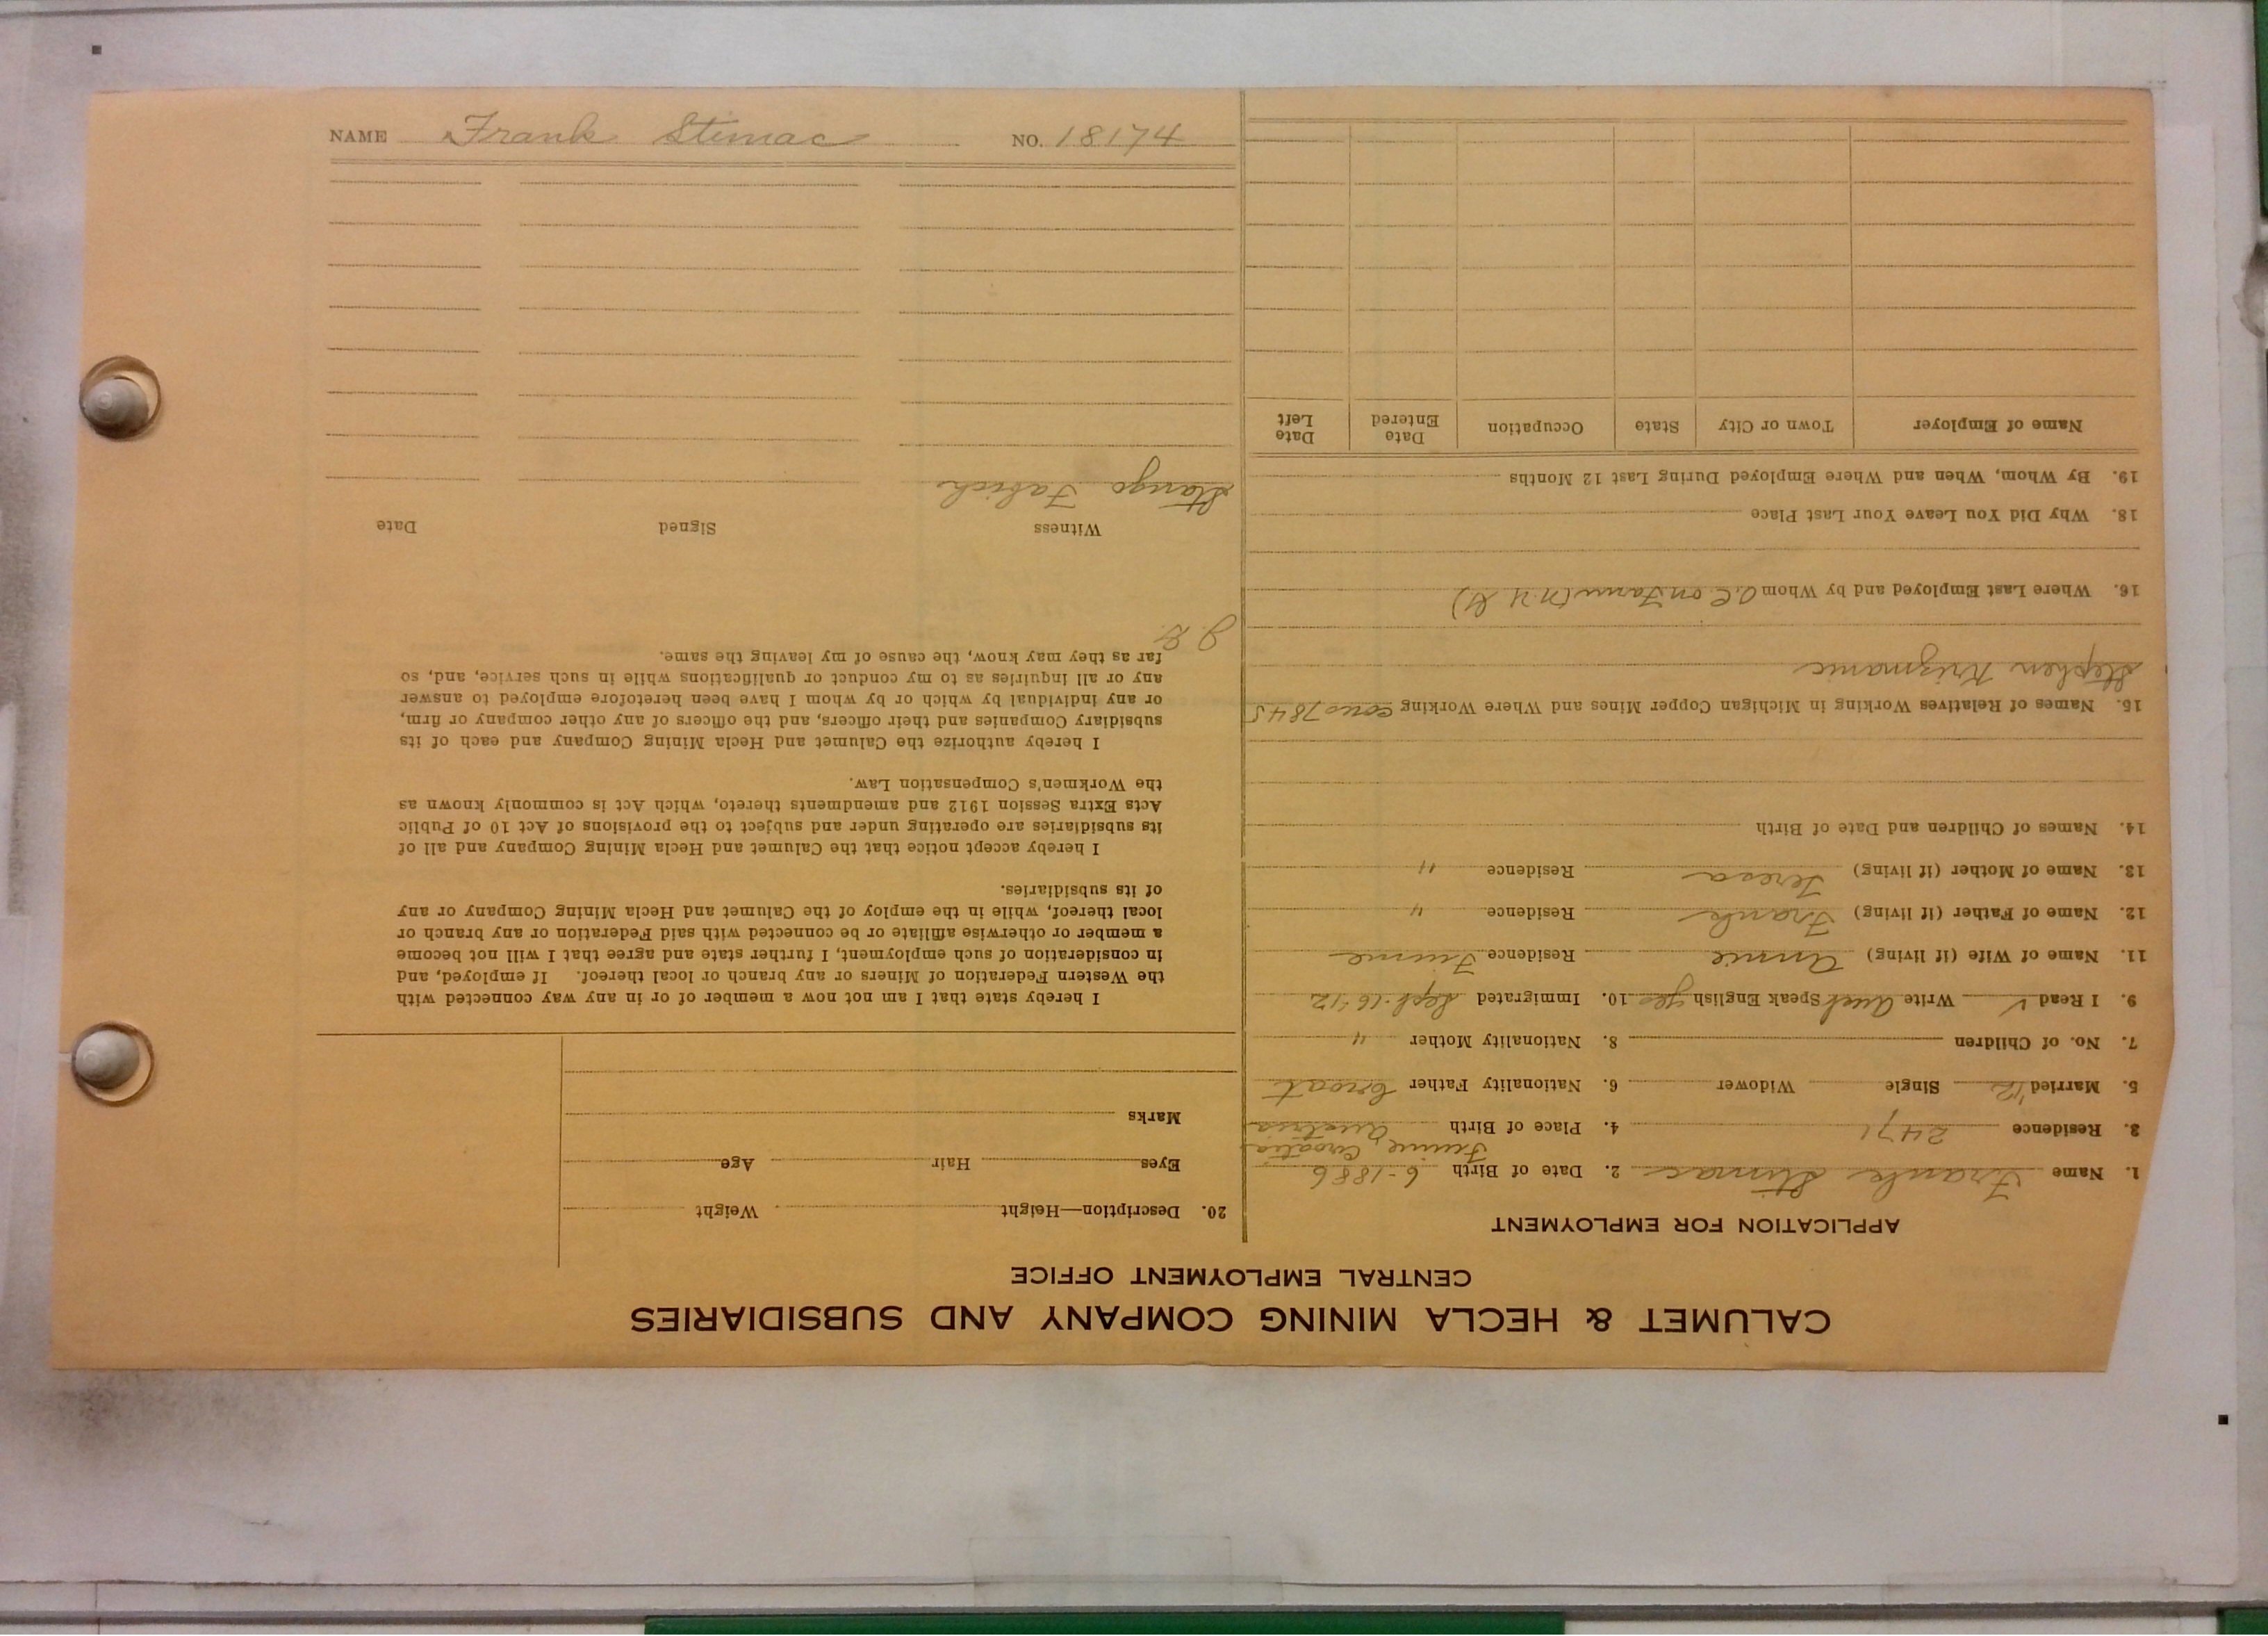 CALUMET & HECLA MINING COMPANY AND SUBSIDIARIES
CENTRAL EMPLOYMENT OFFICE
APPLICATION FOR EMPLOYMENT
1. Name Frank Stimac 2. Date of Birth 6-1886
Fiume, Croatia
3. Residence 2471 4. Place of Birth Austria
5. Married '12 Single Widower 6. Nationality Father Croat
7. No. of Children 8. Nationality Mother "
9. I Read √ Write Speak English yes 10. Immigrated Sept-16-12
11. Name of Wife (if living) Annie Residence Fiume
12. Name of Father (if living) Frank Residence "
13. Name of Mother (if living) Teresa Residence "
14. Names of Children and Date of Birth
15. Names of Relatives Working in Michigan Copper Mines and Where Working 7845
Stephen Krizmanic
16. Where Last Employed and by Whom on Farm
18. Why Did You Leave Your Last Place
19. By Whom, When and Where Employed During Last 12 Months
Name of Employer Town or City State Occupation Date Entered Date Left
20. Description—Height Weight
Eyes Hair Age
Marks
I hereby state that I am not now a member of or in any way connected with
the Western Federation of Miners or any branch or local thereof. If employed, and
in consideration of such employment, I further state and agree that I will not become
a member or otherwise affiliate or be connected with said Federation or any branch or
local thereof, while in the employ of the Calumet and Hecla Mining Company or any
of its subsidiaries.
I hereby accept notice that the Calumet and Hecla Mining Company and all of
its subsidiaries are operating under and subject to the provisions of Act 10 of Public
Acts Extra Session 1912 and amendments thereto, which Act is commonly known as
the Workmen's Compensation Law.
I hereby authorize the Calumet and Hecla Mining Company and each of its
subsidiary Companies and their officers, and the officers of any other company or firm,
or any individual by which or by whom I have been heretofore employed to answer
any or all inquiries as to my conduct or qualifications while in such service, and, so
far as they may know, the cause of my leaving the same.
Witness Signed Date
NAME Frank Stimac NO. 18174